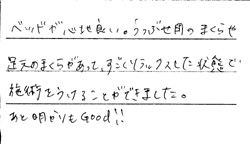 ベッドが心地良い。うつぶせ用のまくらや
足元のまくらがあって、すごくリラックスした状態で
施術をうけることができました。
あと明かりもGood!!